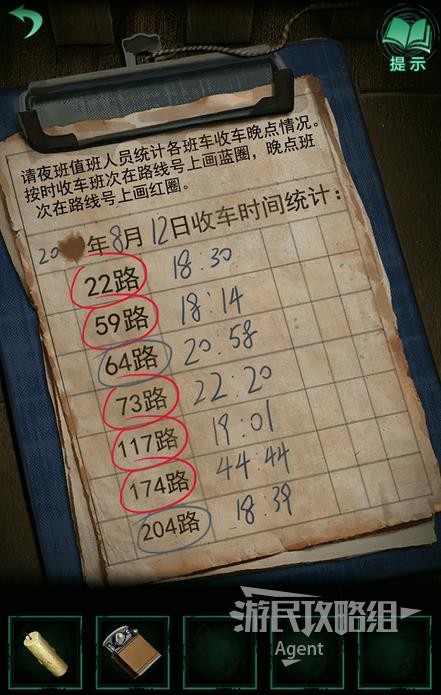 提示
请夜班值班人员统计各班车收车晚点情况。
按时收车班次在路线号上画蓝圈，晚点班
次在路线号上画红圈。
20 年8月12日收车时间统计：
22路 18:30
59路 18:14
64路 20:58
73路 22:20
117路 19:01
174路 44:44
204路 18:39
游民攻略组
Agent